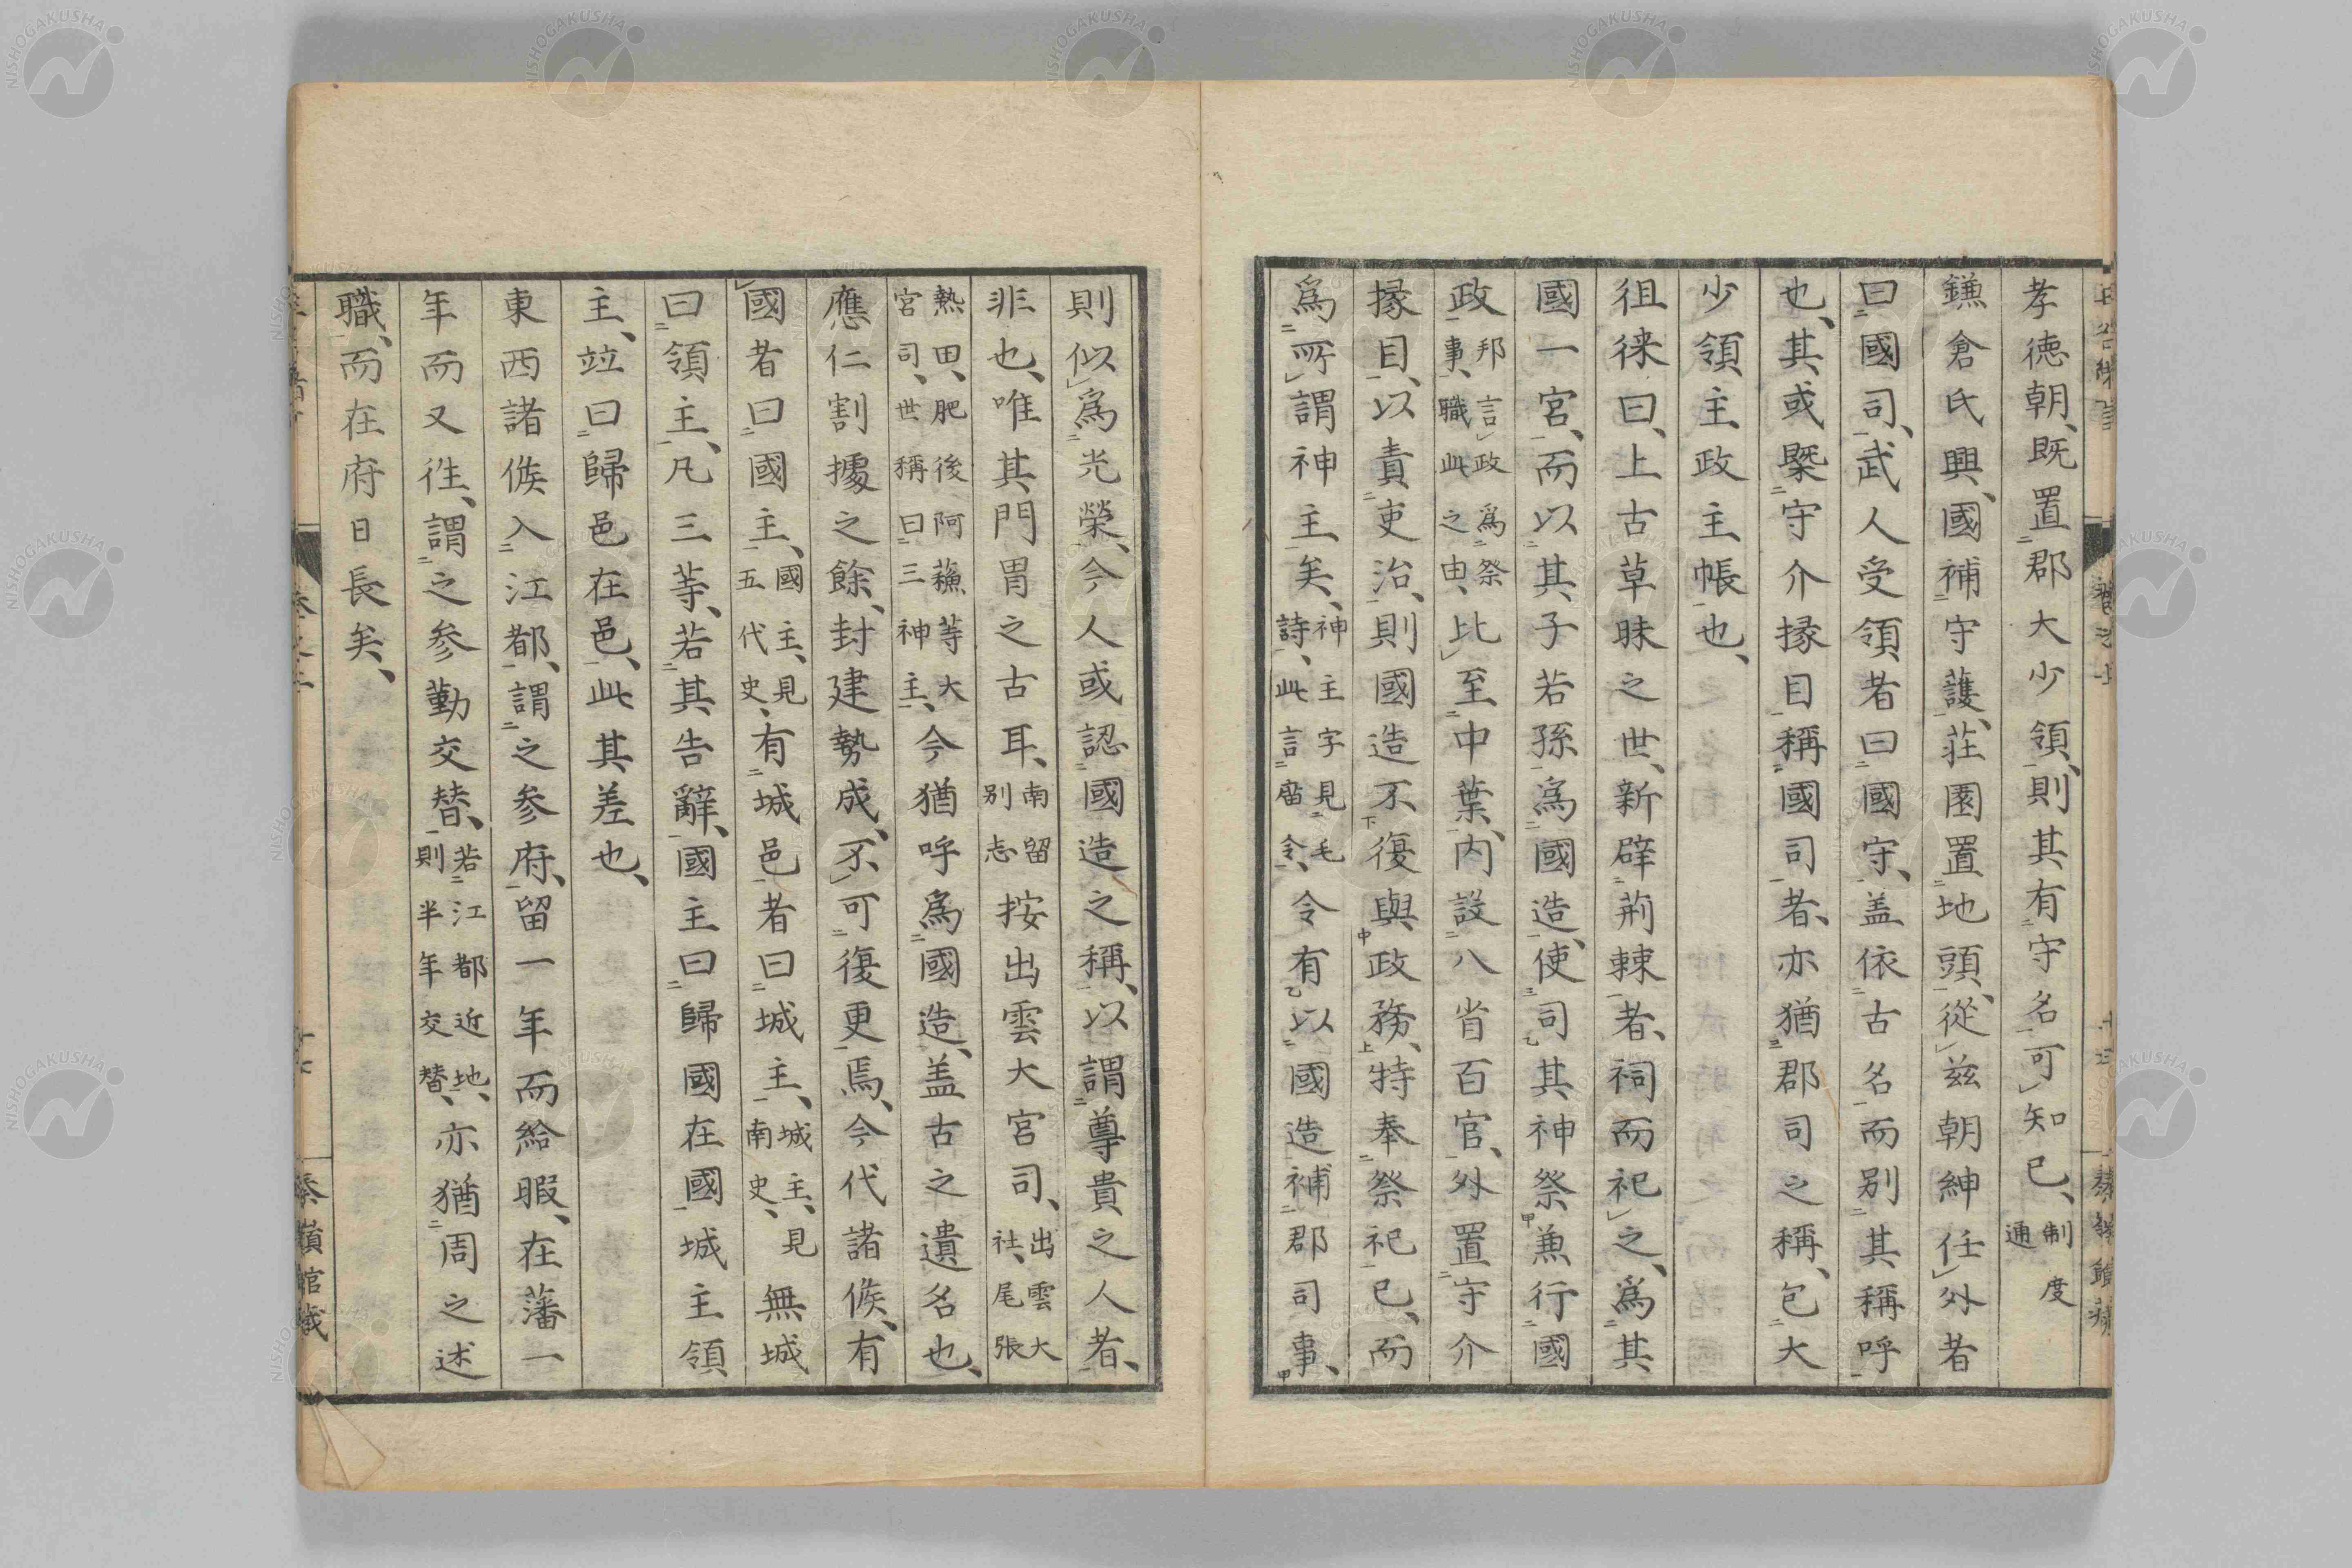 孝徳朝、既置郡大少領、則其有守名可知已、制度通
鎌倉氏興、國補守護、荘園置地頭、從茲朝紳任外者
曰國司、武人受領者曰國守、盖依古名而别其稱呼
也、其或槩守介掾目稱國司者、亦猶郡司之稱、包大
少領主政主帳也、
徂徠曰、上古草昧之世、新辟荊棘者、祠而祀之、爲其
國一宮、而以其子若孫爲國造、使司其神祭兼行國
政、邦言政爲祭事、職此之由、比至中葉、内設八省百官、外置守介
掾目、以責吏治、則國造不復與政務、特奉祭祀已、而
爲所謂神主矣、神主字見毛詩、此言廟令、令有以國造補郡司事、
則似爲光榮、今人或認國造之稱、以謂尊貴之人者、
非也、唯其門胄之古耳、南留别志按出雲大宮司、出雲大社、尾張
熱田、肥後阿蘓等大宮司、世稱曰三神主、今猶呼爲國造、盖古之遺名也、
應仁割據之餘、封建勢成、不可復更焉、今代諸侯、有
國者曰國主、國主、見五代史、有城邑者曰城主、城主、見南史、無城
曰領主、凡三等、若其告辭、國主曰歸國在國城主領
主、竝曰歸邑在邑、此其差也、
東西諸侯入江都、謂之参府、留一年而給暇、在藩一
年而又往、謂之参勤交替、若江都近地、則半年交替、亦猶周之述
職、而在府日長矣、